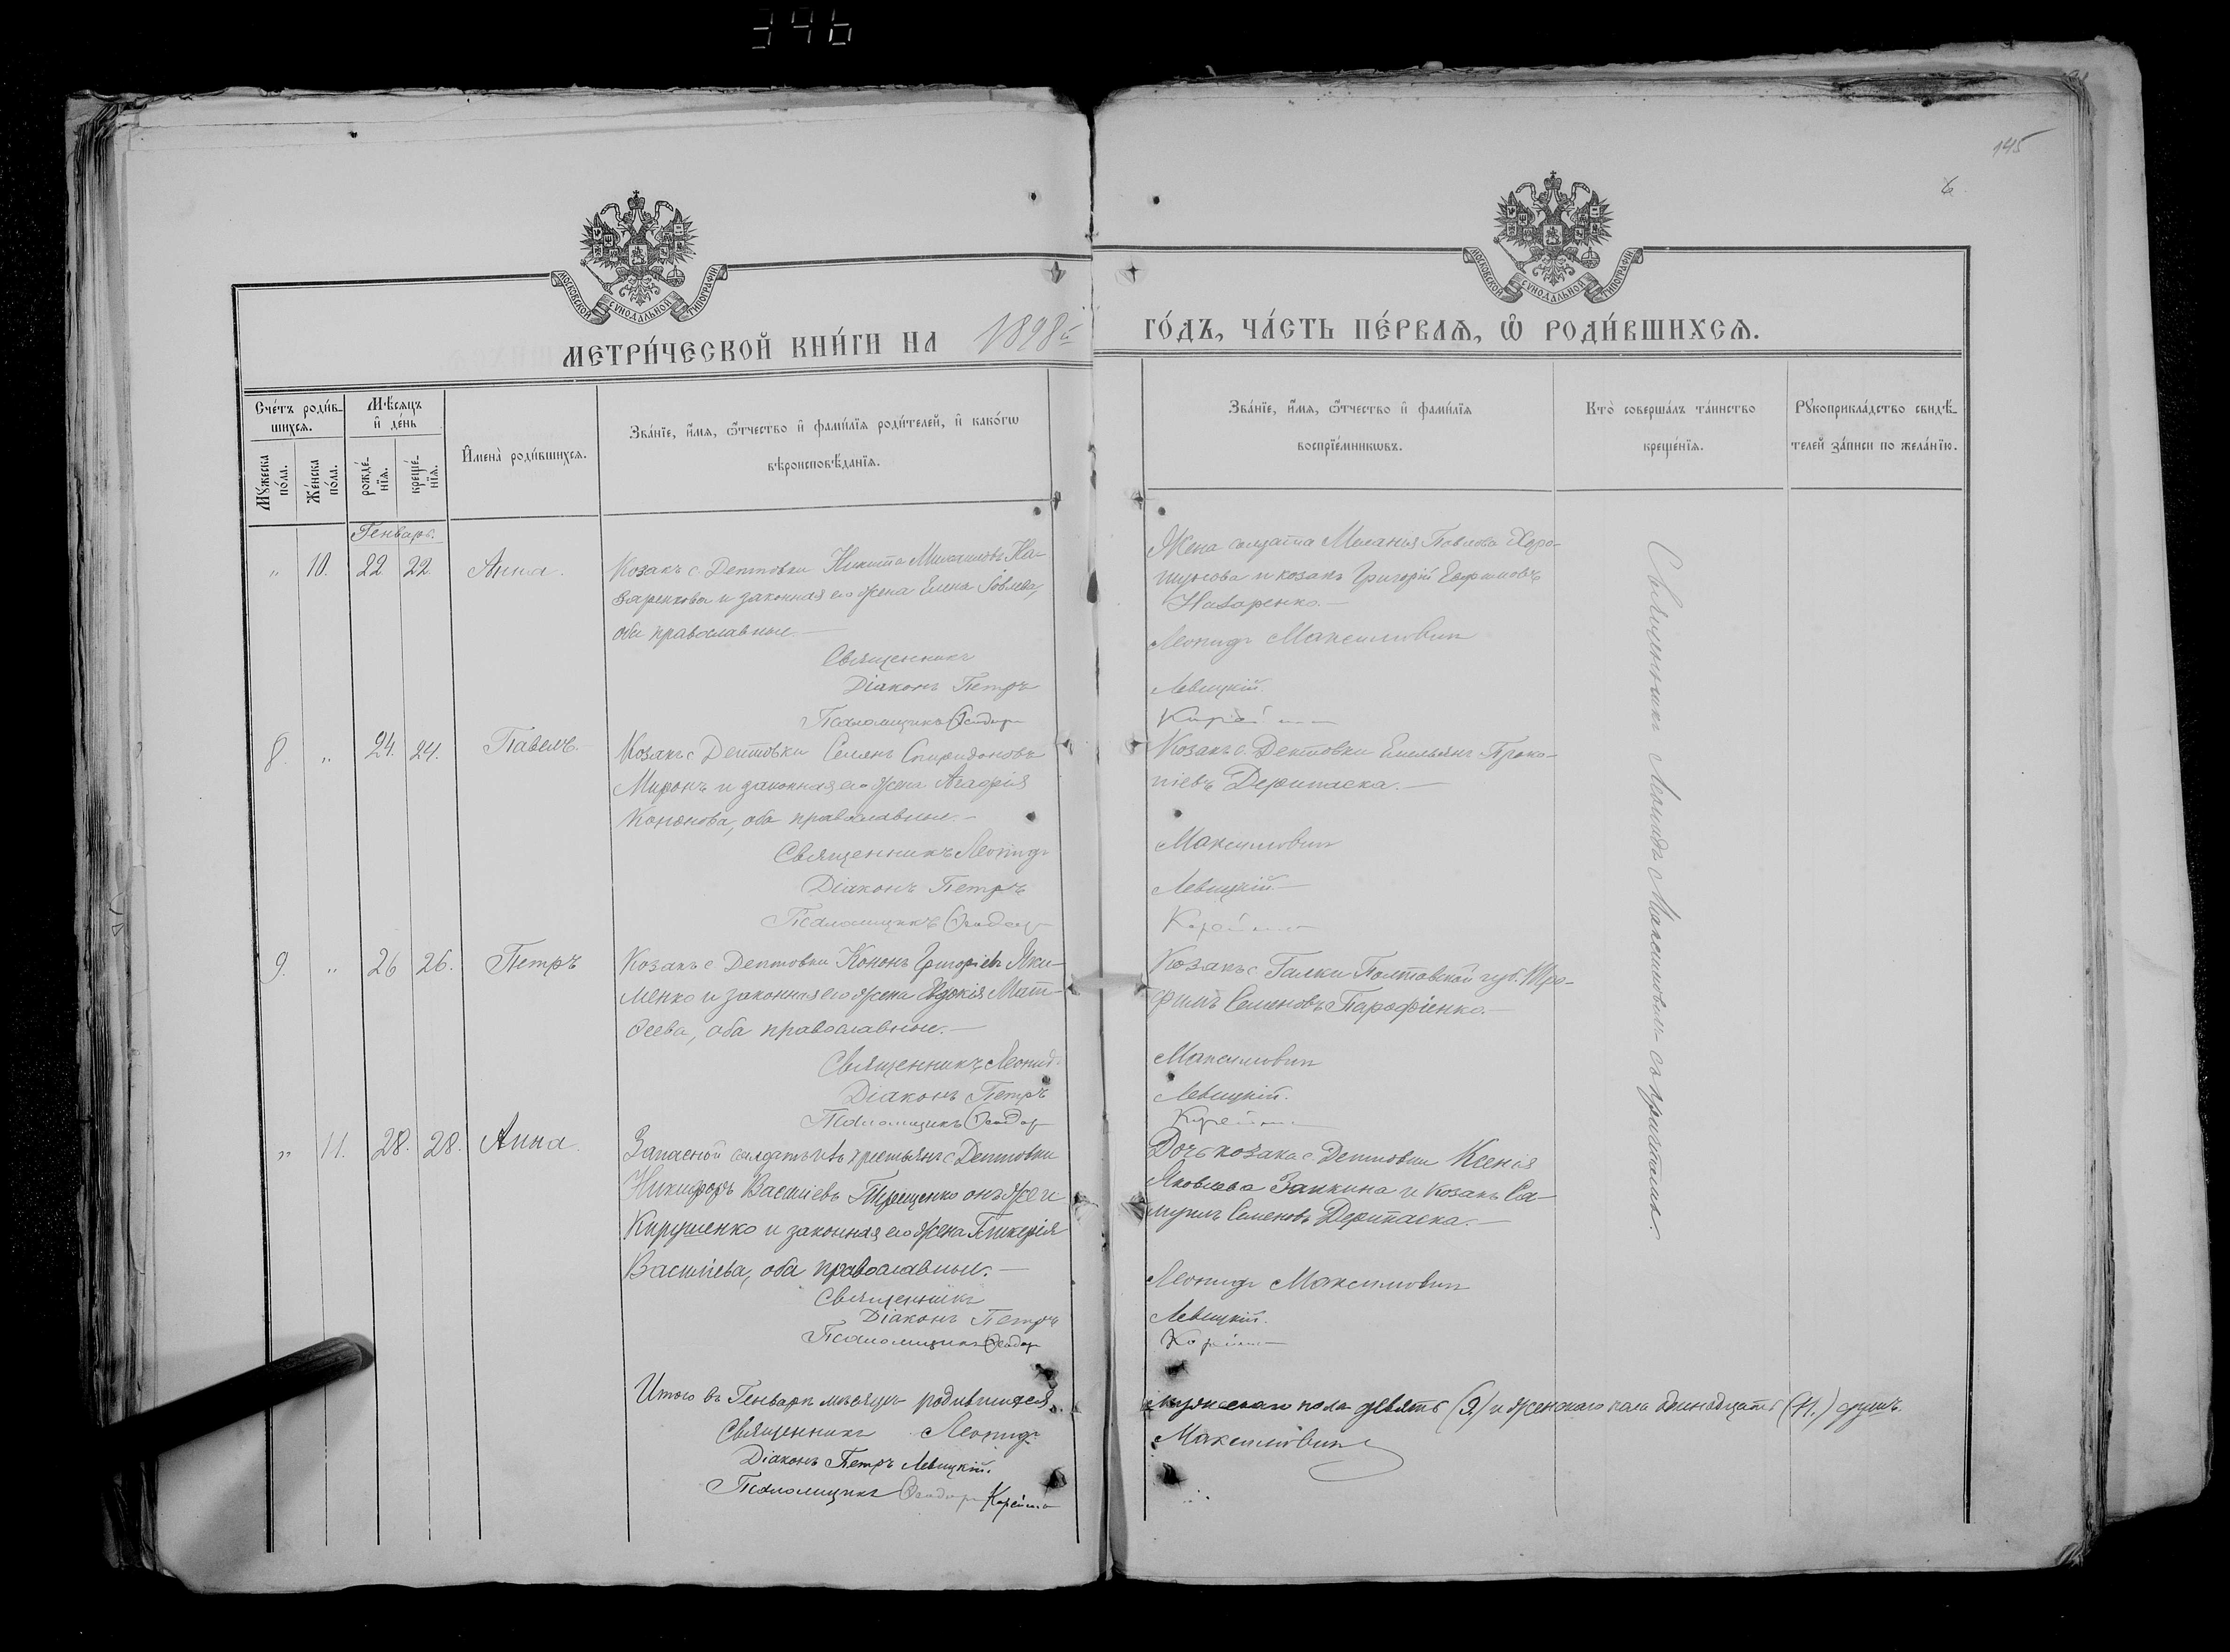 346
145
6
МОСКОВСКОЙ СУНОДАЛЬНОЙ ТИПОГРАФІИ
МОСКОВСКОЙ СУНОДАЛЬНОЙ ТИПОГРАФІИ
МЕТРИ́ЧЕСКОЙ КНИ́ГИ НА 1898й ГО́ДЪ, ЧА́СТЬ ПЕ́РВАѦ, Ѡ҆ РОДИ́ВШИХСѦ.
Сче́тъ роди́в-
шихсѧ.
Мꙋ́жеска по́ла.
Же́нска по́ла.
Мѣ́сяцъ и҆ де́нь
рожде́-нїѧ.
креще́-нїѧ.
И҆мена̀ роди́вшихсѧ.
Зва́нїе, и҆́мѧ, ѻ҆́тчество и҆ фами́лїѧ роди́телей, и҆ како́гѡ
вѣроисповѣ́данїѧ.
Зва́нїе, и҆́мѧ, ѻ҆́тчество и҆ фами́лїѧ
воспрїе́мникѡвъ.
Кто̀ соверша́лъ та́инство
креще́нїѧ.
Рꙋкоприкла́дство свидѣ́-
телей за́писи по жела́нїю.
Генварь.
" 10. 22 22. Анна.
Козакъ с. Дептовки Никита Михаиловъ На-
заренковъ и законная его жена Елена Іовлева,
оба православные.
Священникъ
Діаконъ Петръ
Псаломщикъ Ѳеодоръ
Жена солдатка Меланія Павлова Хоро-
шунова и козакъ Григорій Ефремовъ
Назаренко.
Леонидъ Максимовичъ
Левицкій.
8. " 24. 24. Павелъ.
Козакъ с. Дептовки Семенъ Спиридоновъ
Миронъ и законная его жена Агафія
Кононова, оба православные.
Священникъ Леонидъ
Діаконъ Петръ
Псаломщикъ Ѳеодоръ
Козакъ с. Дептовки Емельянъ Проко-
піевъ Дерипаска.
Максимовичъ
Левицкій.
9. " 26 26. Петръ
Козакъ с. Дептовки Кононъ Григоріевъ Яки-
менко и законная его жена Евдокія Мат-
ѳеева, оба православные.
Священникъ Леонидъ
Діаконъ Петръ
Псаломщикъ Ѳеодоръ
Козакъ с. Галки Полтавской губ. Тро-
фимъ Семеновъ Парафіенко.
Максимовичъ
Левицкій.
" 11. 28. 28. Анна.
Запасной солдатъ изъ крестьянъ с. Дептовки
Никифоръ Василіевъ Терещенко онъ же и
Кирушенко и законная его жена Гликерія
Василіева, оба православные.
Священникъ
Діаконъ Петръ
Псаломщикъ Ѳеодоръ
Дочь козака с. Дептовки Ксенія
Яковлева Заикина и козакъ Са-
муилъ Семеновъ Дерипаска.
Леонидъ Максимовичъ
Левицкій.
Священникъ Леонидъ Максимовичъ
Итого въ Генварѣ мѣсяцѣ родившихся мужескаго пола девять (9) и женскаго пола одинадцать (11.) душъ.
Священникъ Леонидъ Максимовичъ
Діаконъ Петръ Левицкій.
Псаломщикъ Ѳеодоръ